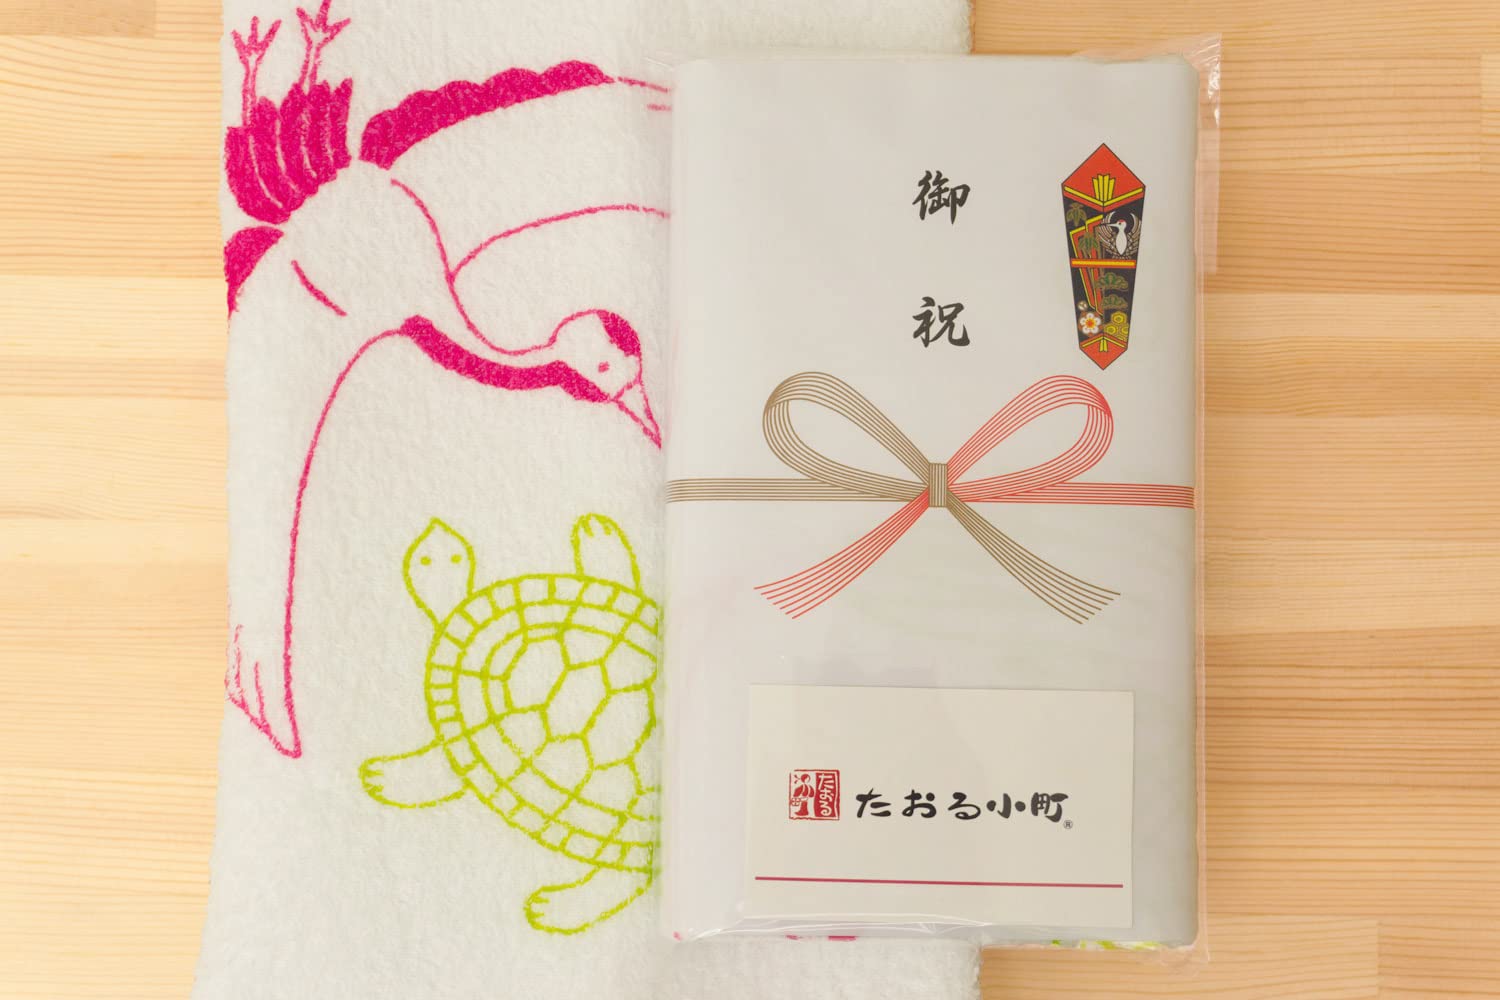 御祝
たおる
たおる小町®